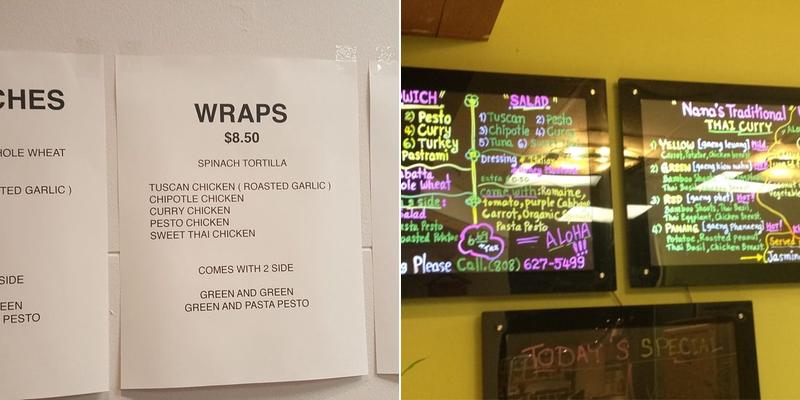 CHES
HOLE WHEAT
TED GARLIC )
SIDE
EEN
PESTO
WRAPS
$8.50
SPINACH TORTILLA
TUSCAN CHICKEN ( ROASTED GARLIC )
CHIPOTLE CHICKEN
CURRY CHICKEN
PESTO CHICKEN
SWEET THAI CHICKEN
COMES WITH 2 SIDE
GREEN AND GREEN
GREEN AND PASTA PESTO
WICH"
2) Pesto
4) Curry
6) Turkey
Pastrami
abatta
ole Wheat
s side:
alad
Pesto
oasted Potatoe
g Please Call.(808) 627-5499
"SALAD"
1)Tuscan 2)Pesto
3)Chipotle 4)Curry
5)Tuna 6)
Dressing
Extra
come with: Romaine,
tomato, purple Cabbage
Carrot, Organic
Pasta Pesto
= ALOHA !!!
"Nana's Traditional
THAI CURRY
1) YELLOW (gaeng leuang) Mild
Carrot, Potatoe, Chicken breast
2) GREEN (gaeng kiew wahn)
Bamboo Shoots,
Thai Basil,
3) RED (gaeng phet) Hot!
Bamboo Shoots, Thai Basil,
Thai Eggplant, Chicken Breast.
4) PANANG (gaeng Phanaeng) Hot!
Potatoe, Roasted peanut,
Thai Basil, Chicken Breast.
Served
(Jasmin
TODAY'S SPECIAL